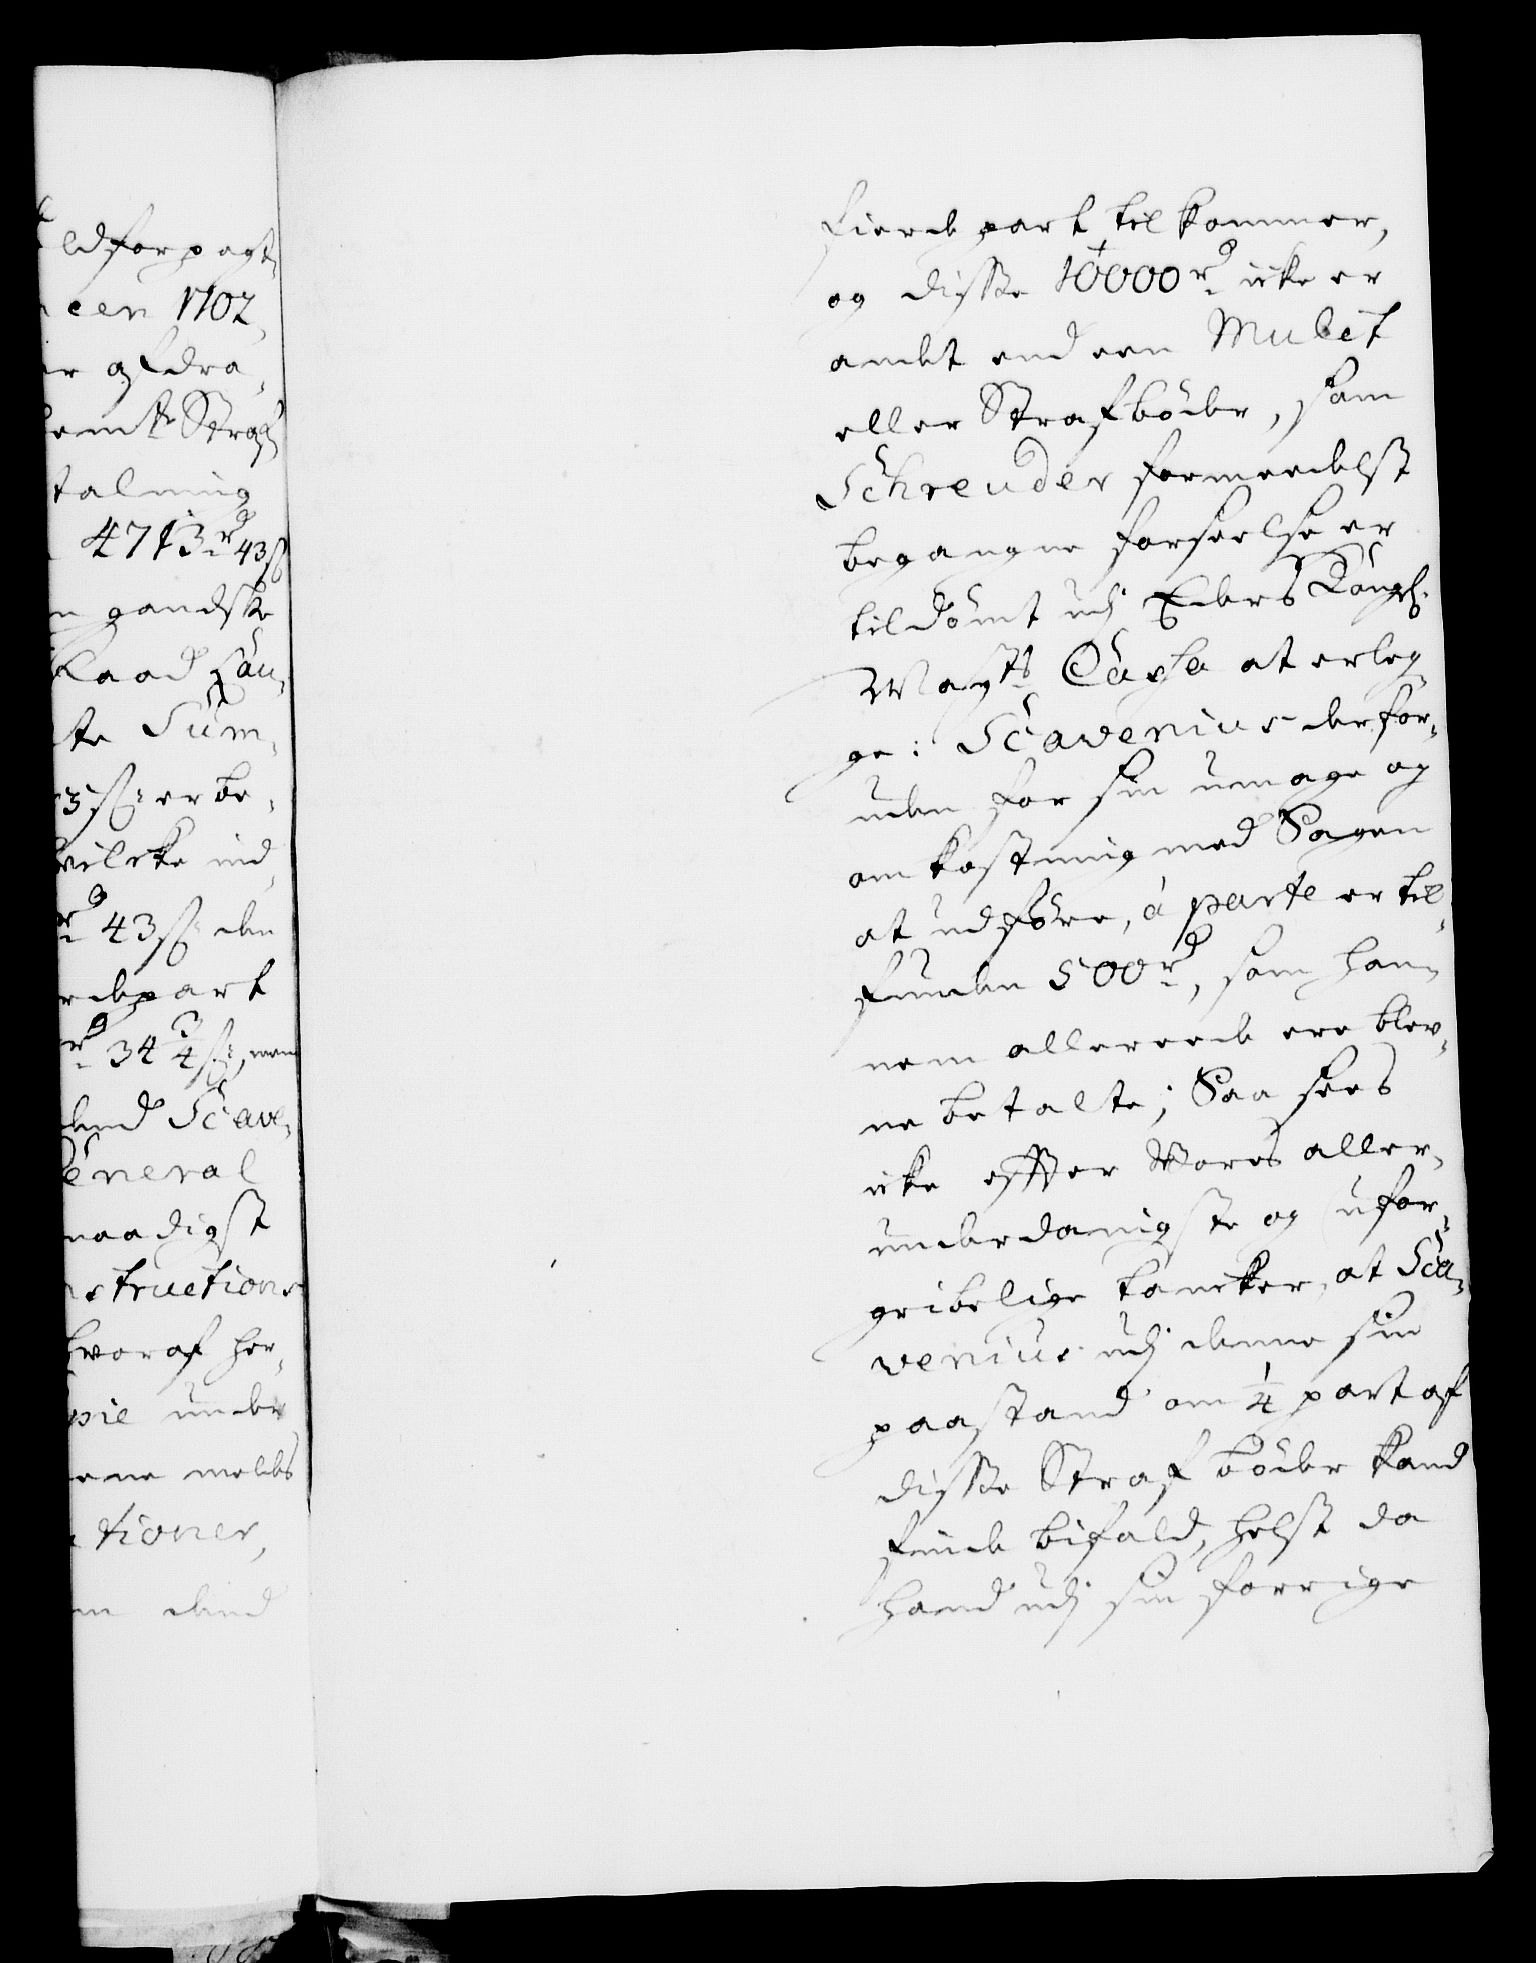 ldforpagt
een 1702,
er afdra,
emte Straf
talning
4713 rd 43 ß
n gandske
laad Lau,
ste Sum,
3 ß: er be,
hvilcke ind,
rd 43 ß den
redepart
rd 34 3/4 ß:, men
dend Scave,
General
naadigst
nstructions
hvoraf her,
pie under
ene meldes
tioner,
m dend
Fierde part tilkommer,
og disse 10000 rd icke er
andet end een Mulct
eller Strafbøder, som
Schreuder formeedelst
begangne forseelse er
tildømt udj Eders Kongl:
Mayts Cassa at erleg,
ge: Scavenius der for,
uden for sin umage og
omkostning med Sagen
at udføre, á parte er til,
funden 500 rd, som han,
nem allereede ere blev,
ne betalte; Saa sees
icke effter Vores aller,
underdanigste og ufor,
gribelige tancker, at Sca,
venius udj denne sin
paastand om 1/4 part af
disse Straf bøder kand
finde bifald, helst da
hand udj sin forrige